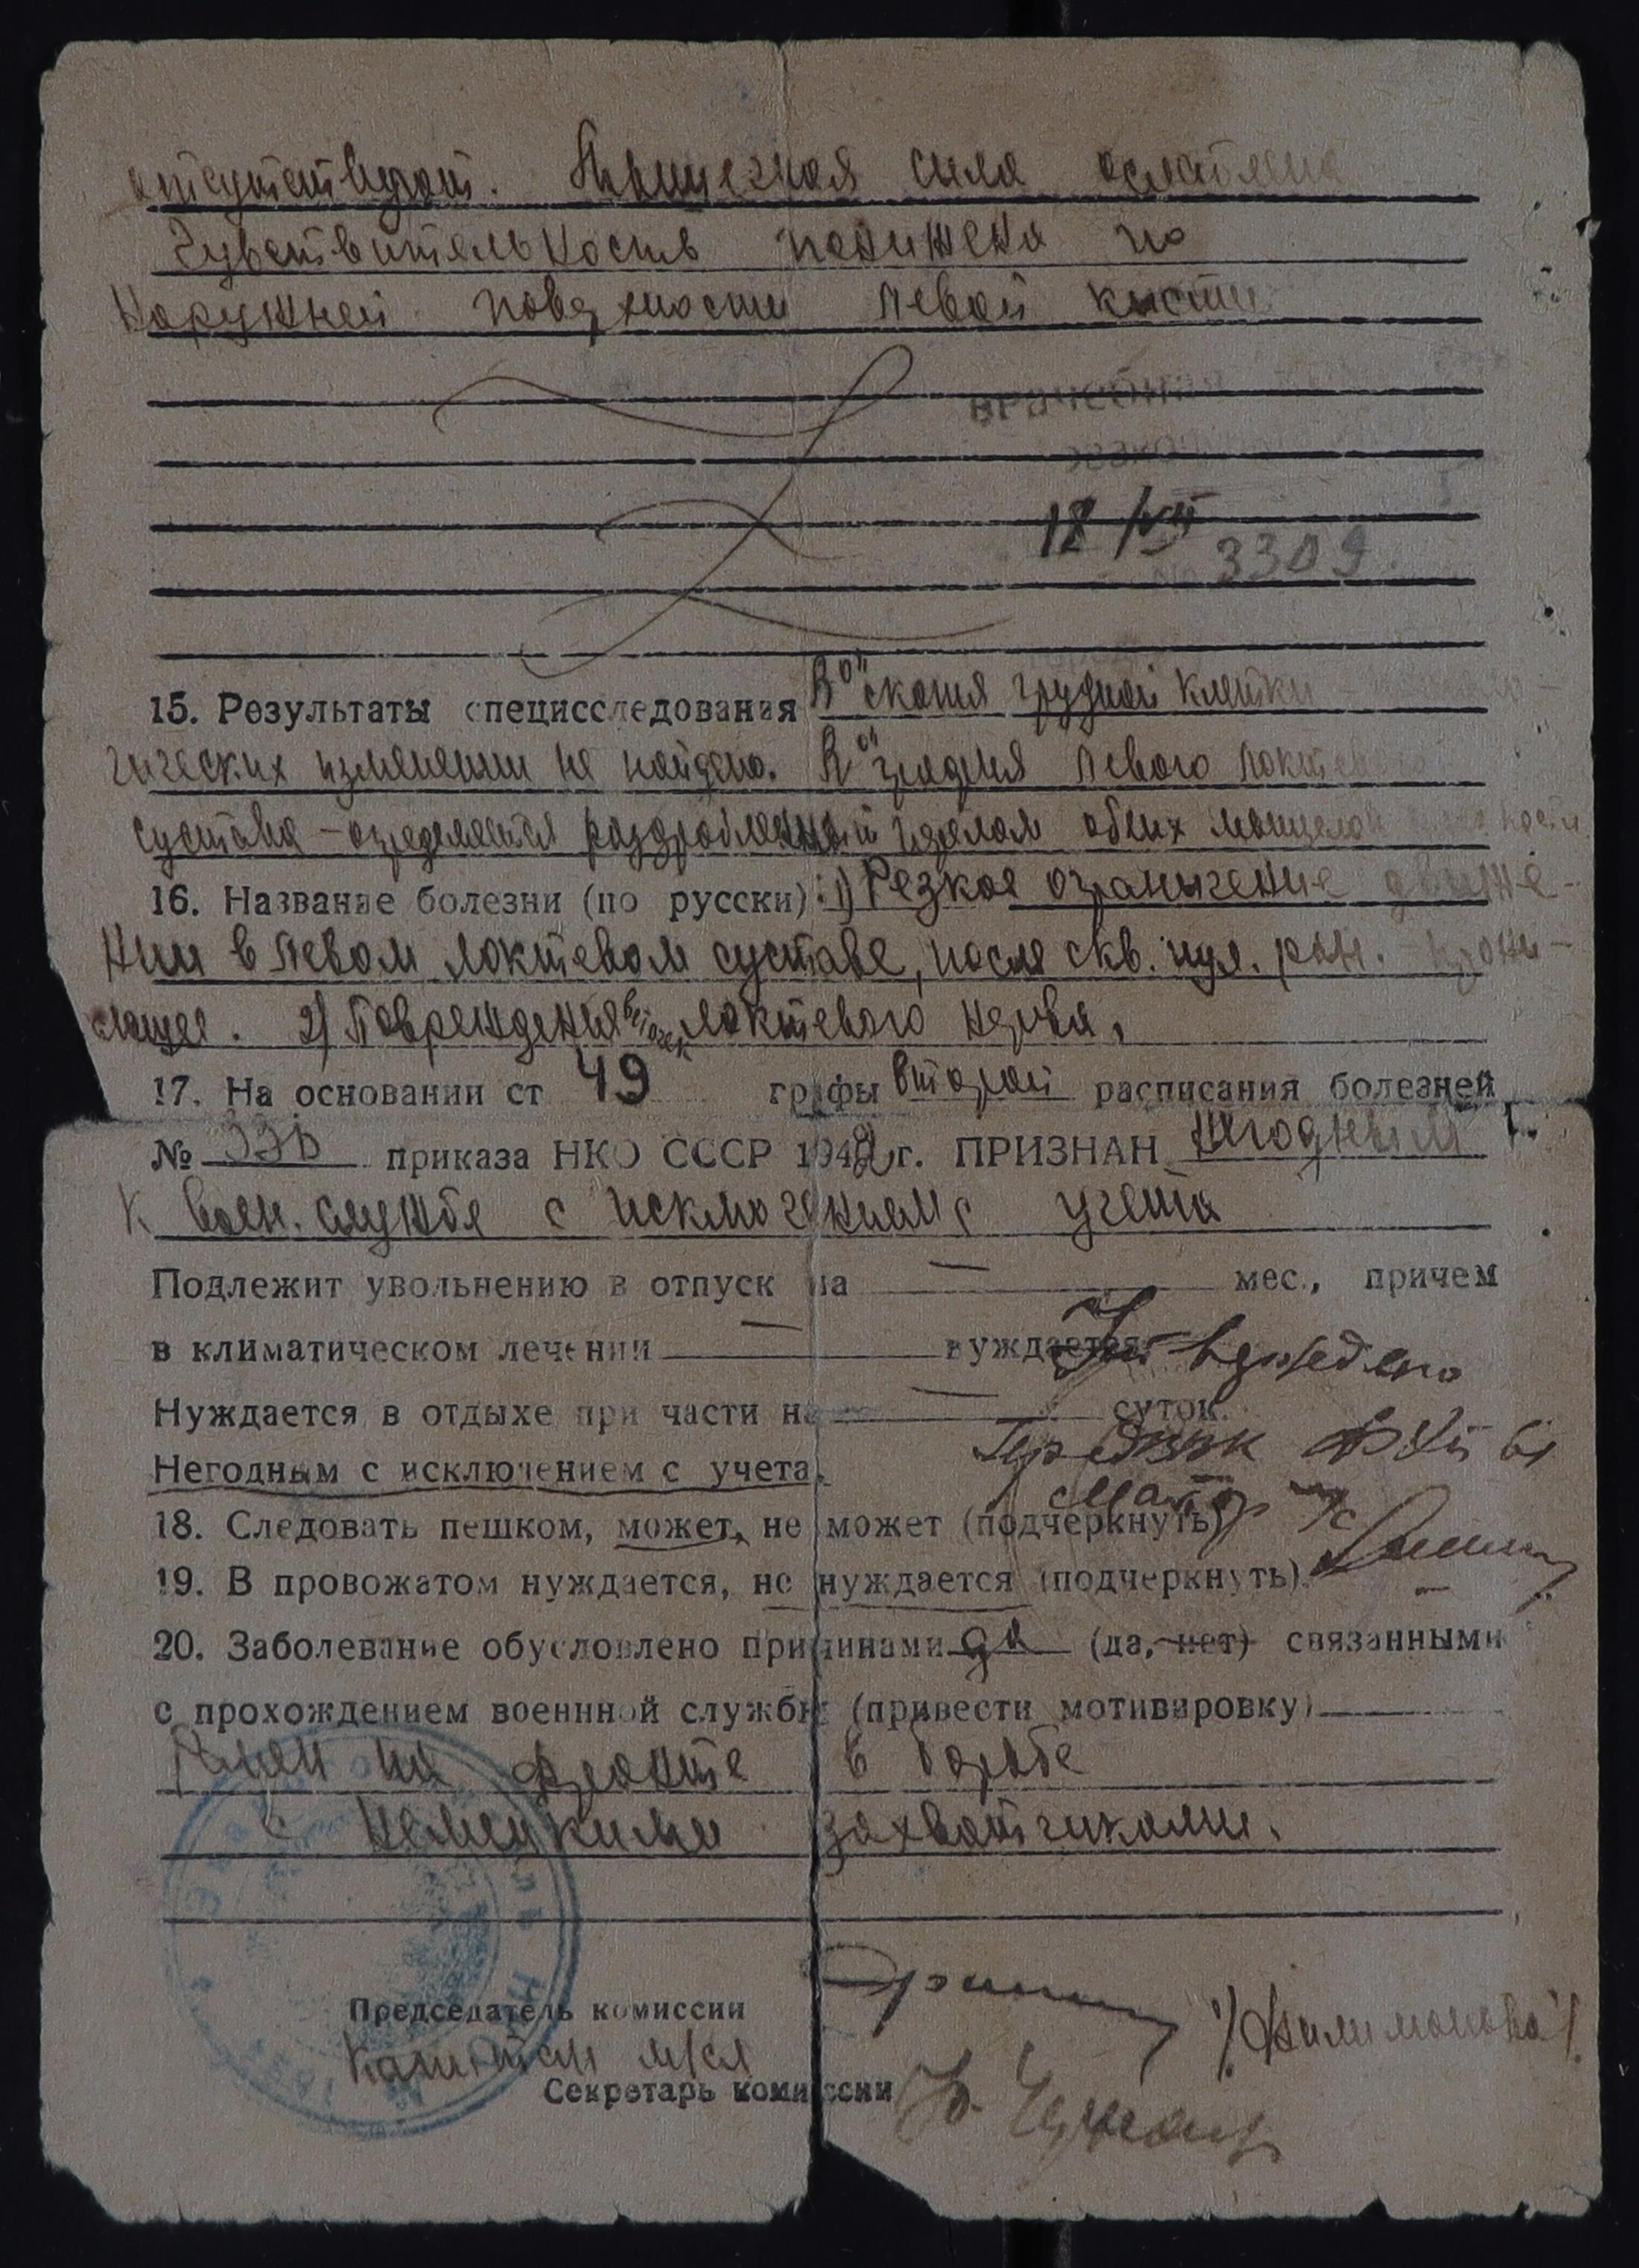 отсутствуют. Мышечная сила ослаблена
Чувствительность понижена по
Наружней поверхности левой кисти
Врачебная
18/VII
№ 3309.
15. Результаты специсследования R° скопия грудной клетки
гических изменении не найдено. R° графия левого локтевого
сустава – определяется раздробленный перелом обеих мыщелов кости
16. Название болезни (по русски): 1) Резкое ограничение движе-
нии в левом локтевом суставе, после скв. пул. ран. – прони-
2) Повреждения веточек локтевого нерва.
17. На основании ст 49 графы второй расписания болезней
№ 336 приказа НКО СССР 1942 г. ПРИЗНАН Негодным
к воен. службе с исключением с учета
Подлежит увольнению в отпуск на — мес., причем
в климатическом лечении — нуждается
Утверждено
Нуждается в отдыхе при части на — суток.
Негодным с исключением с учета.
18. Следовать пешком, может, не может (подчеркнуть)
майор м/с
19. В провожатом нуждается, не нуждается (подчеркнуть).
20. Заболевание обусловлено причинами да (да, нет) связанными
с прохождением военнной службы (привести мотивировку)
Ранен на фронте в борьбе
с немецкими захватчиками.
Председатель комиссии
Капитан м/сл /Филимонова/
Секретарь комиссии